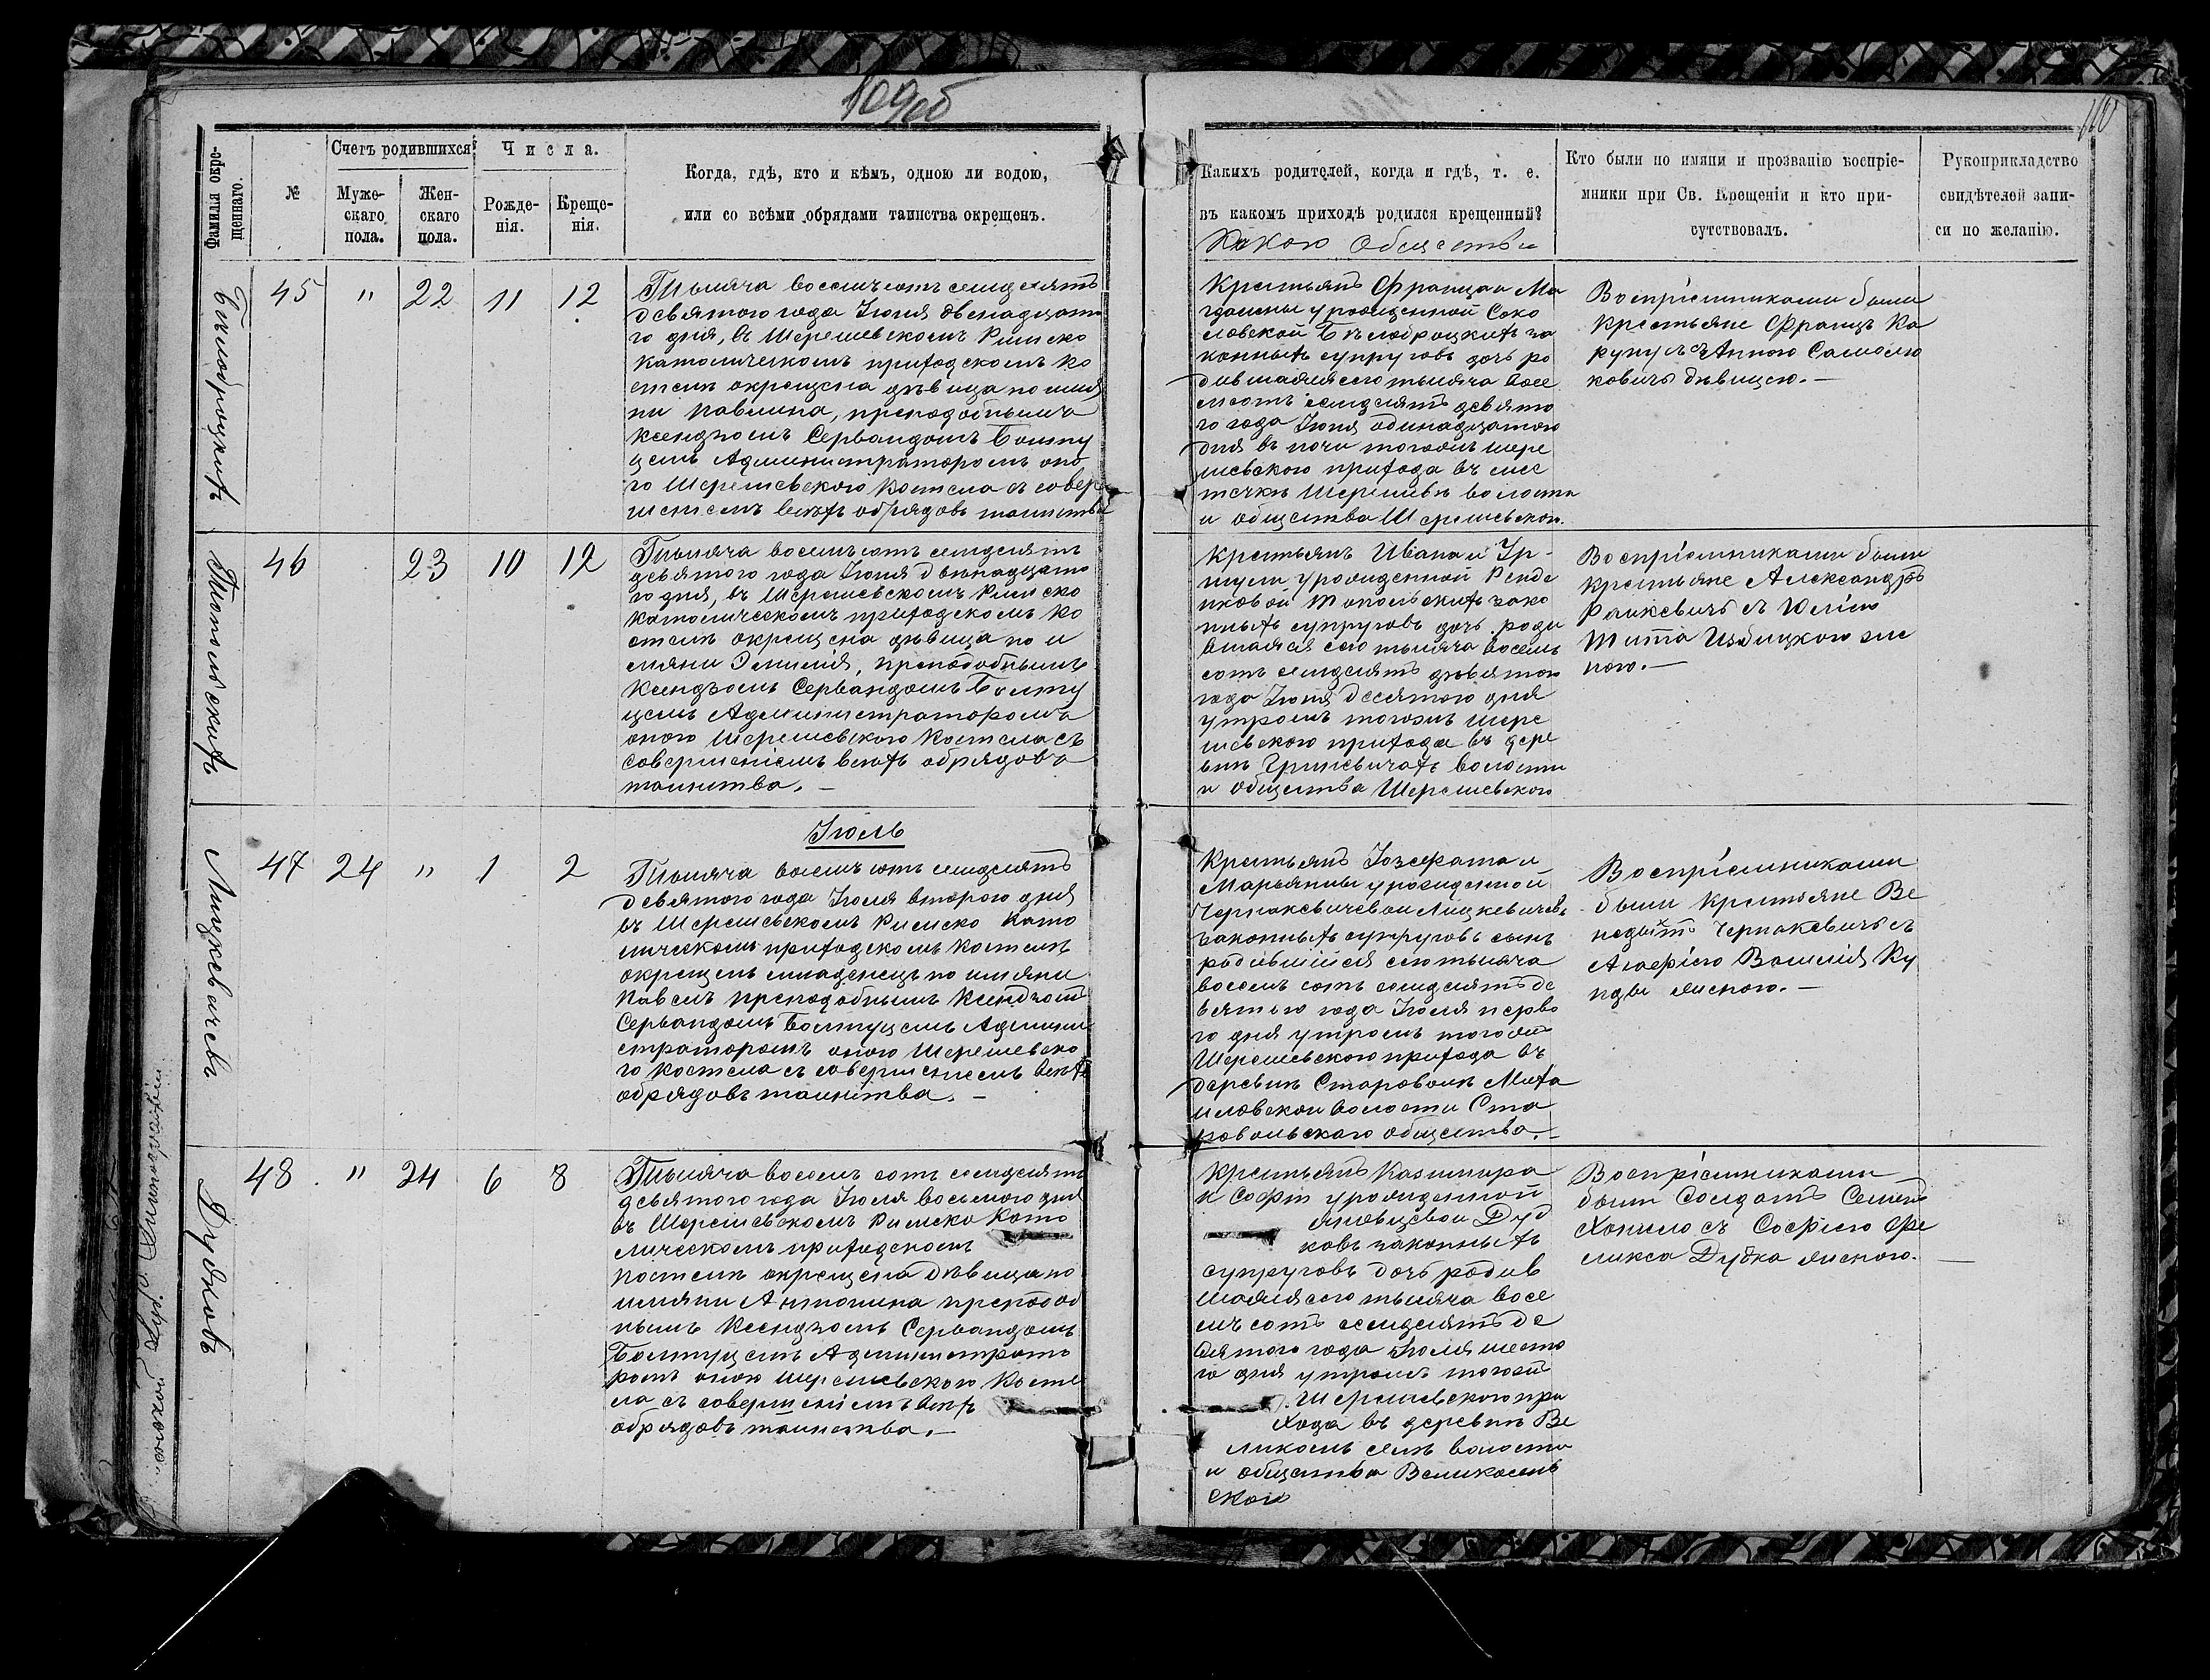 109об
110
Фамилія окре-
щеннаго.
№
Счетъ родившихся
Муже-
скаго
пола.
Жен-
скаго
пола.
Числа.
Рожде-
нія.
Креще-
нія.
Когда, гдѣ, кто и кѣмъ, одною ли водою,
или со всѣми обрядами таинства окрещенъ.
Каких родителей, когда и гдѣ, т. е.
въ какомъ приходѣ родился крещенный?
Какого Общества
Кто были по имяни и прозванію воспріе-
мники при Св. Крещеніи и кто при-
сутствовалъ.
Рукоприкладство
свидѣтелей запи-
си по желанію.
Бѣлоброцкихъ
45 " 22 11 12
Тысяча восемьсотъ семдесятъ
девятого года Іюня двенадцато
го дня, въ Шерешевскомъ Римско
Католическомъ приходскомъ Ко
стелѣ окрещена дѣвица по имя
ни Павлина, преподобнымъ
Ксендзомъ Сервандомъ Болту
цемъ Администраторомъ оно
го Шерешевского Костела съ совер
шенiемъ всѣхъ обрядовъ таинства
Крестьянъ Франца и Ма
гдалены урожденной Соко
ловской Бѣлоброцкихъ за
конныхъ супруговъ дочь ро
дившаяся сего тысяча восе
мсотъ семдесятъ девято
го года Іюня одинадцатого
дня въ ночи тогожъ Шере
шевского прихода въ мес
течкѣ Шерешевѣ волости
и общества Шерешевской.
Воспріемниками были
крестьяне Францъ Ка
съ Анною Самойло
ковичъ дѣвицею.—
Топольскихъ
46 23 10 12
Тысяча восемьсотъ семдесятъ
девятого года Іюня двѣнадцато
го дня, въ Шерешевскомъ Римско
Католическомъ приходскомъ Ко
стелѣ окрещена дѣвица по и
мяни Эмилія, преподобнымъ
Ксендзомъ Сервандомъ Болту
цемъ Администраторомъ
оного Шерешевского Костела съ
совершеніемъ всѣхъ обрядовъ
таинства.—
Крестьянъ Ивана и Ур-
шули урожденной Ренде
иковой Топольскихъ зако
нныхъ супруговъ дочь роди
вшаяся сего тысяча восемь
сотъ семдесятъ девятого
года Іюня десятого дня
утромъ тогожъ Шере
шевского прихода въ дере
внѣ Гриневичахъ волости
и общества Шерешевского
Воспріемниками были
крестьяне Александръ
съ Юлiею
Тита Избицкого же
ною.—
Іюль
Лицкевичевъ
47 24 " 1 2
Тысяча восемьсотъ семдесятъ
девятого года Іюля второго дня
въ Шерешевскомъ Римско Като
лическомъ приходскомъ Костелѣ
окрещенъ младенецъ по имяни
Павелъ преподобнымъ Ксендзомъ
Сервандомъ Болтуцемъ Админи
страторомъ оного Шерешевско
го Костела съ совершенiемъ всѣхъ
обрядовъ таинства.—
Крестьянъ Іозефата и
Марьянны урожденной
Чернакевичевой Лицкевичевъ
законныхъ супруговъ сынъ
родившійся сего тысяча
восемь сотъ семдесятъ де
вятого года Іюля перво
го дня утромъ тогожъ
Шерешевского прихода въ
деревнѣ Староволѣ Миха
йловской волости Ста
ровольскаго общества.—
Воспріемниками
были Крестьяне Ве
недыктъ Чернакевичъ съ
Агафіею Василія Ку
нцы женою.—
Дудковъ
48 " 24 6 8
Тысяча восемь сотъ семдесятъ
девятого года Іюля восьмого дня
въ Шерешевскомъ Римско Като
лическомъ приходскомъ
Костелѣ окрещена дѣвица по
имяни Антонина преподоб
нымъ Ксендзомъ Сервандомъ
Болтуцемъ Администрато
ромъ оного Шерешевского Косте
ла съ совершенiемъ всѣхъ
обрядовъ таинства.—
Крестьянъ Казимира
и Софіи урожденной
Дуд
ковъ законныхъ
супруговъ дочь родив
шаяся сего тысяча восе
мь сотъ семдесятъ де
вятого года Іюля шесто
го дня утромъ тогожъ
Шерешевского при
хода въ деревнѣ Ве
ликомъ селѣ волости
и общества Великосель
ского
Воспріемниками
были Солдатъ Семенъ
съ Софіею Фе
ликса Дудка женою.—